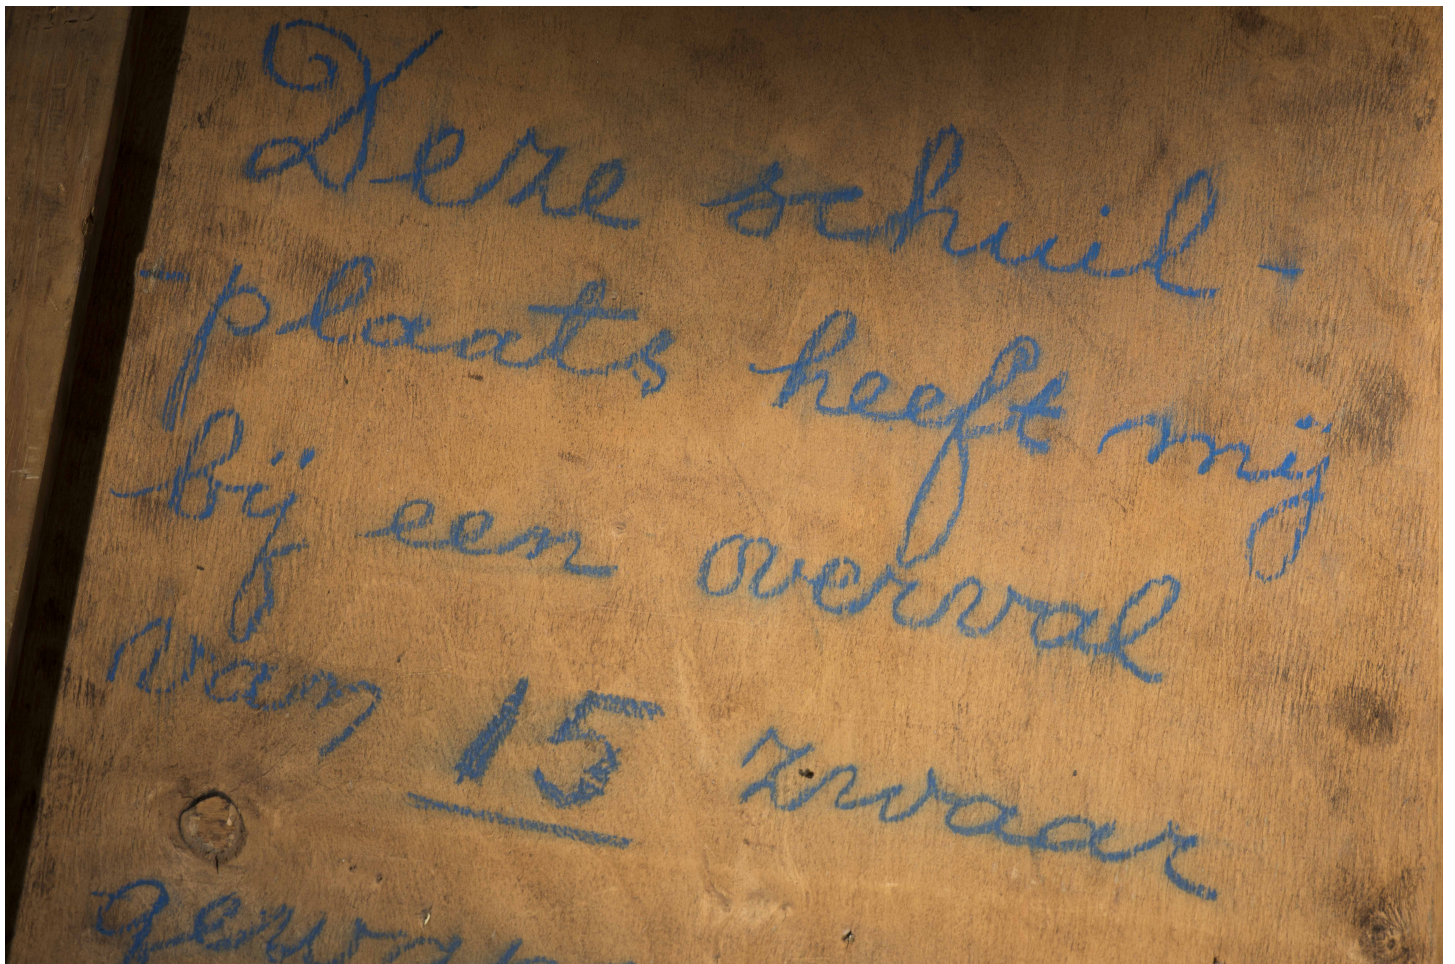 Deze schuil-
-plaats heeft mij
bij een overval
van 15 zwaar